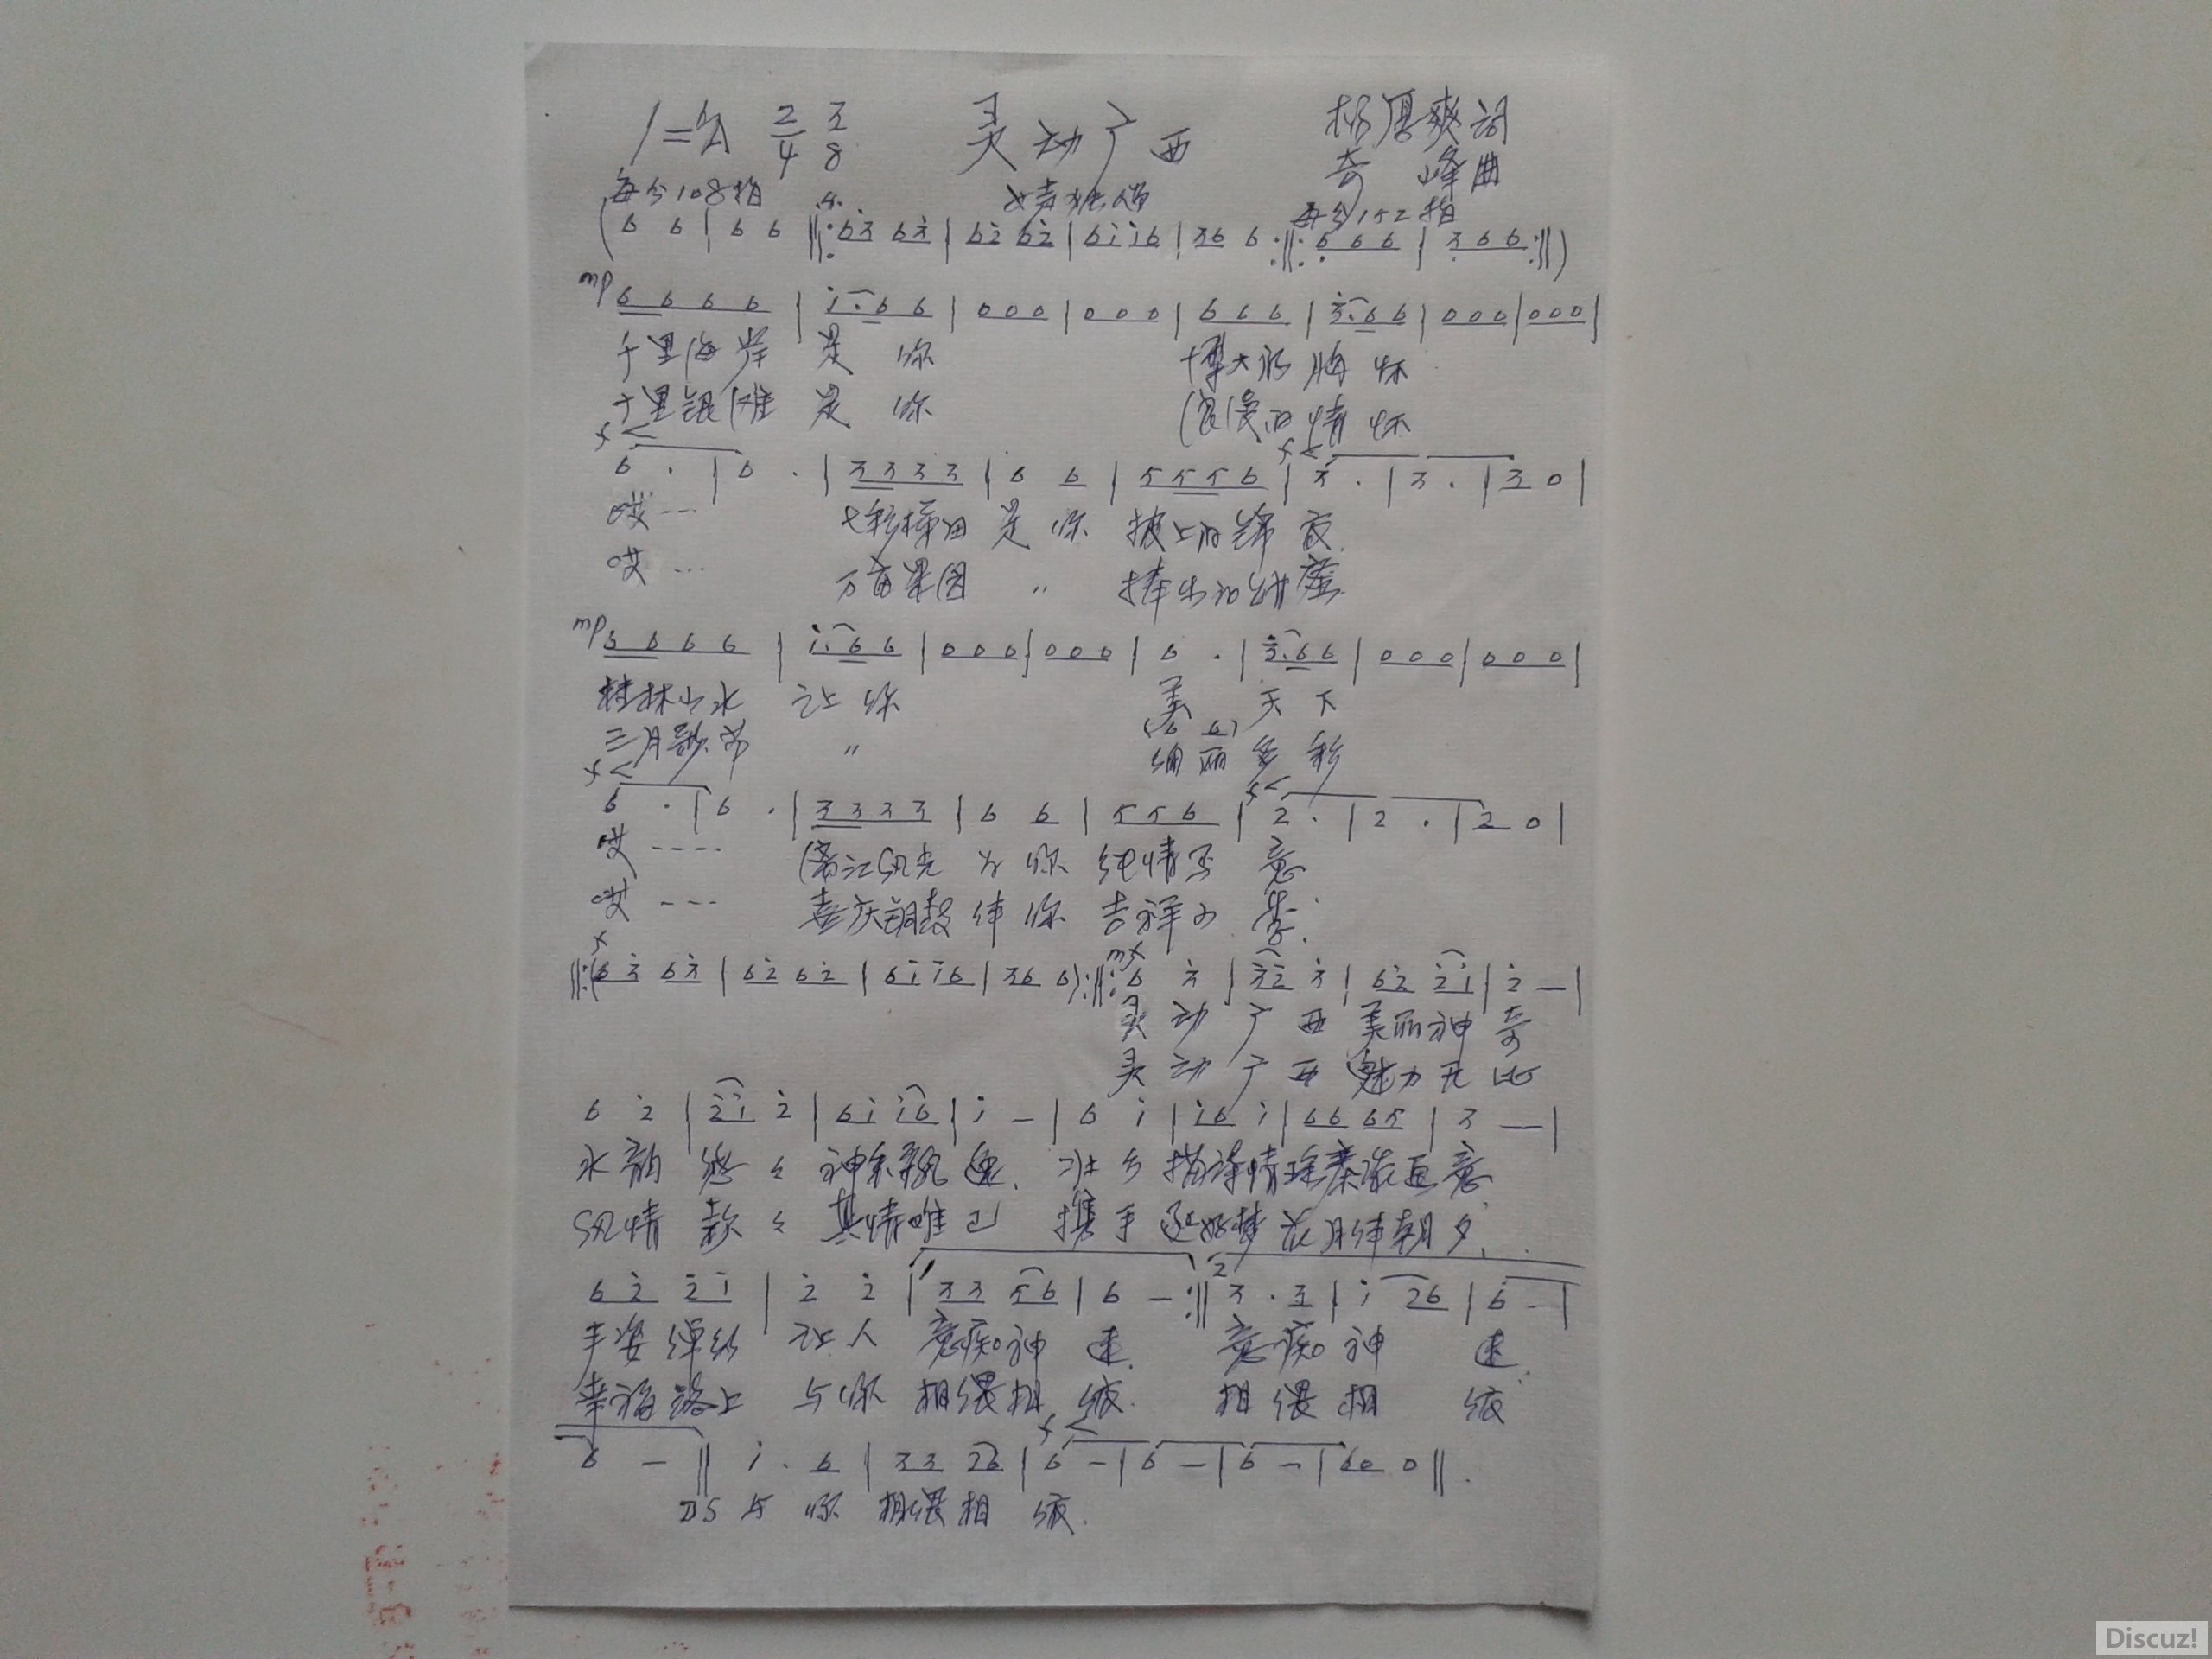 1=♭A 2/4 3/8 灵动广西 杨厚爽词
奇峰曲
每分108拍 女声独唱 每分152拍
(6 6 | 6 6 ‖: 6 3̇ 6 3̇ | 6 2̇ 6 2̇ | 6 1̇ 1̇ 6 | 3 6 6 :‖: 6 6 6 | 3 6 6 :‖)
mp 6 6 6 6 | 1̇. 6 6 | 0 0 0 | 0 0 0 | 6 6 6 | 3̇. 6 6 | 0 0 0 | 0 0 0 |
千里海岸 是 你 博大的 胸 怀
十里银滩 是 你 浪漫的 情 怀
f <
6 . | 6 . | 3 3 3 3 | 6 6 | 5 5 5 6 | 3 . | 3 . | 3 0 |
哎… 七彩梯田 是 你 披上的锦 衣
哎… 万亩果园 〃 捧出的
mp 6 6 6 6 | 1̇. 6 6 | 0 0 0 | 0 0 0 | 6 . | 3̇. 6 6 | 0 0 0 | 0 0 0 |
桂林山水 让 你 美 天 下
(6 6)
三月歌节 〃 绚丽 多 彩
f <
6 . | 6 . | 3 3 3 3 | 6 6 | 5 5 6 | 2 . | 2 . | 2 0 |
哎…… 漓江风光 为 你 纯情 意
哎… 喜庆铜鼓 伴 你 吉祥
f mf
‖:(6 3̇ 6 3̇ | 6 2̇ 6 2̇ | 6 1̇ 1̇ 6 | 3 6 6):‖: 6 3̇ | 3̇ 2̇ 3̇ | 6 2̇ 2̇ 1̇ | 2̇ — |
灵 动 广 西 美丽神 奇
灵 动 广 西 魅力无 比
6 2̇ | 2̇ 1̇ 2̇ | 6 1̇ 1̇ 6 | 1̇ — | 6 1̇ | 1̇ 6 1̇ | 6 6 6 5 | 3 — |
水韵 悠 々 神采飘逸、壮乡 描诗情瑶寨 意
风情 款 々 其情难已 携手 好梦 花月伴朝夕
6 2̇ 2̇ 1̇ | 2̇ 2̇ | 3 3 5 6 | 6 — :‖ 3 . 3 | 1̇ 2 6 | 6 — |
丰姿绰约 让人 意痴神 迷. 意痴 神 迷
幸福路上 与你 相偎相 依. 相偎 相 依
f <
6 — ‖ 1̇ . 6 | 3 3 2 6 | 6 — | 6 — | 6 — | 6 0 0 ‖.
DS 与 你 相偎相 依.
Discuz!